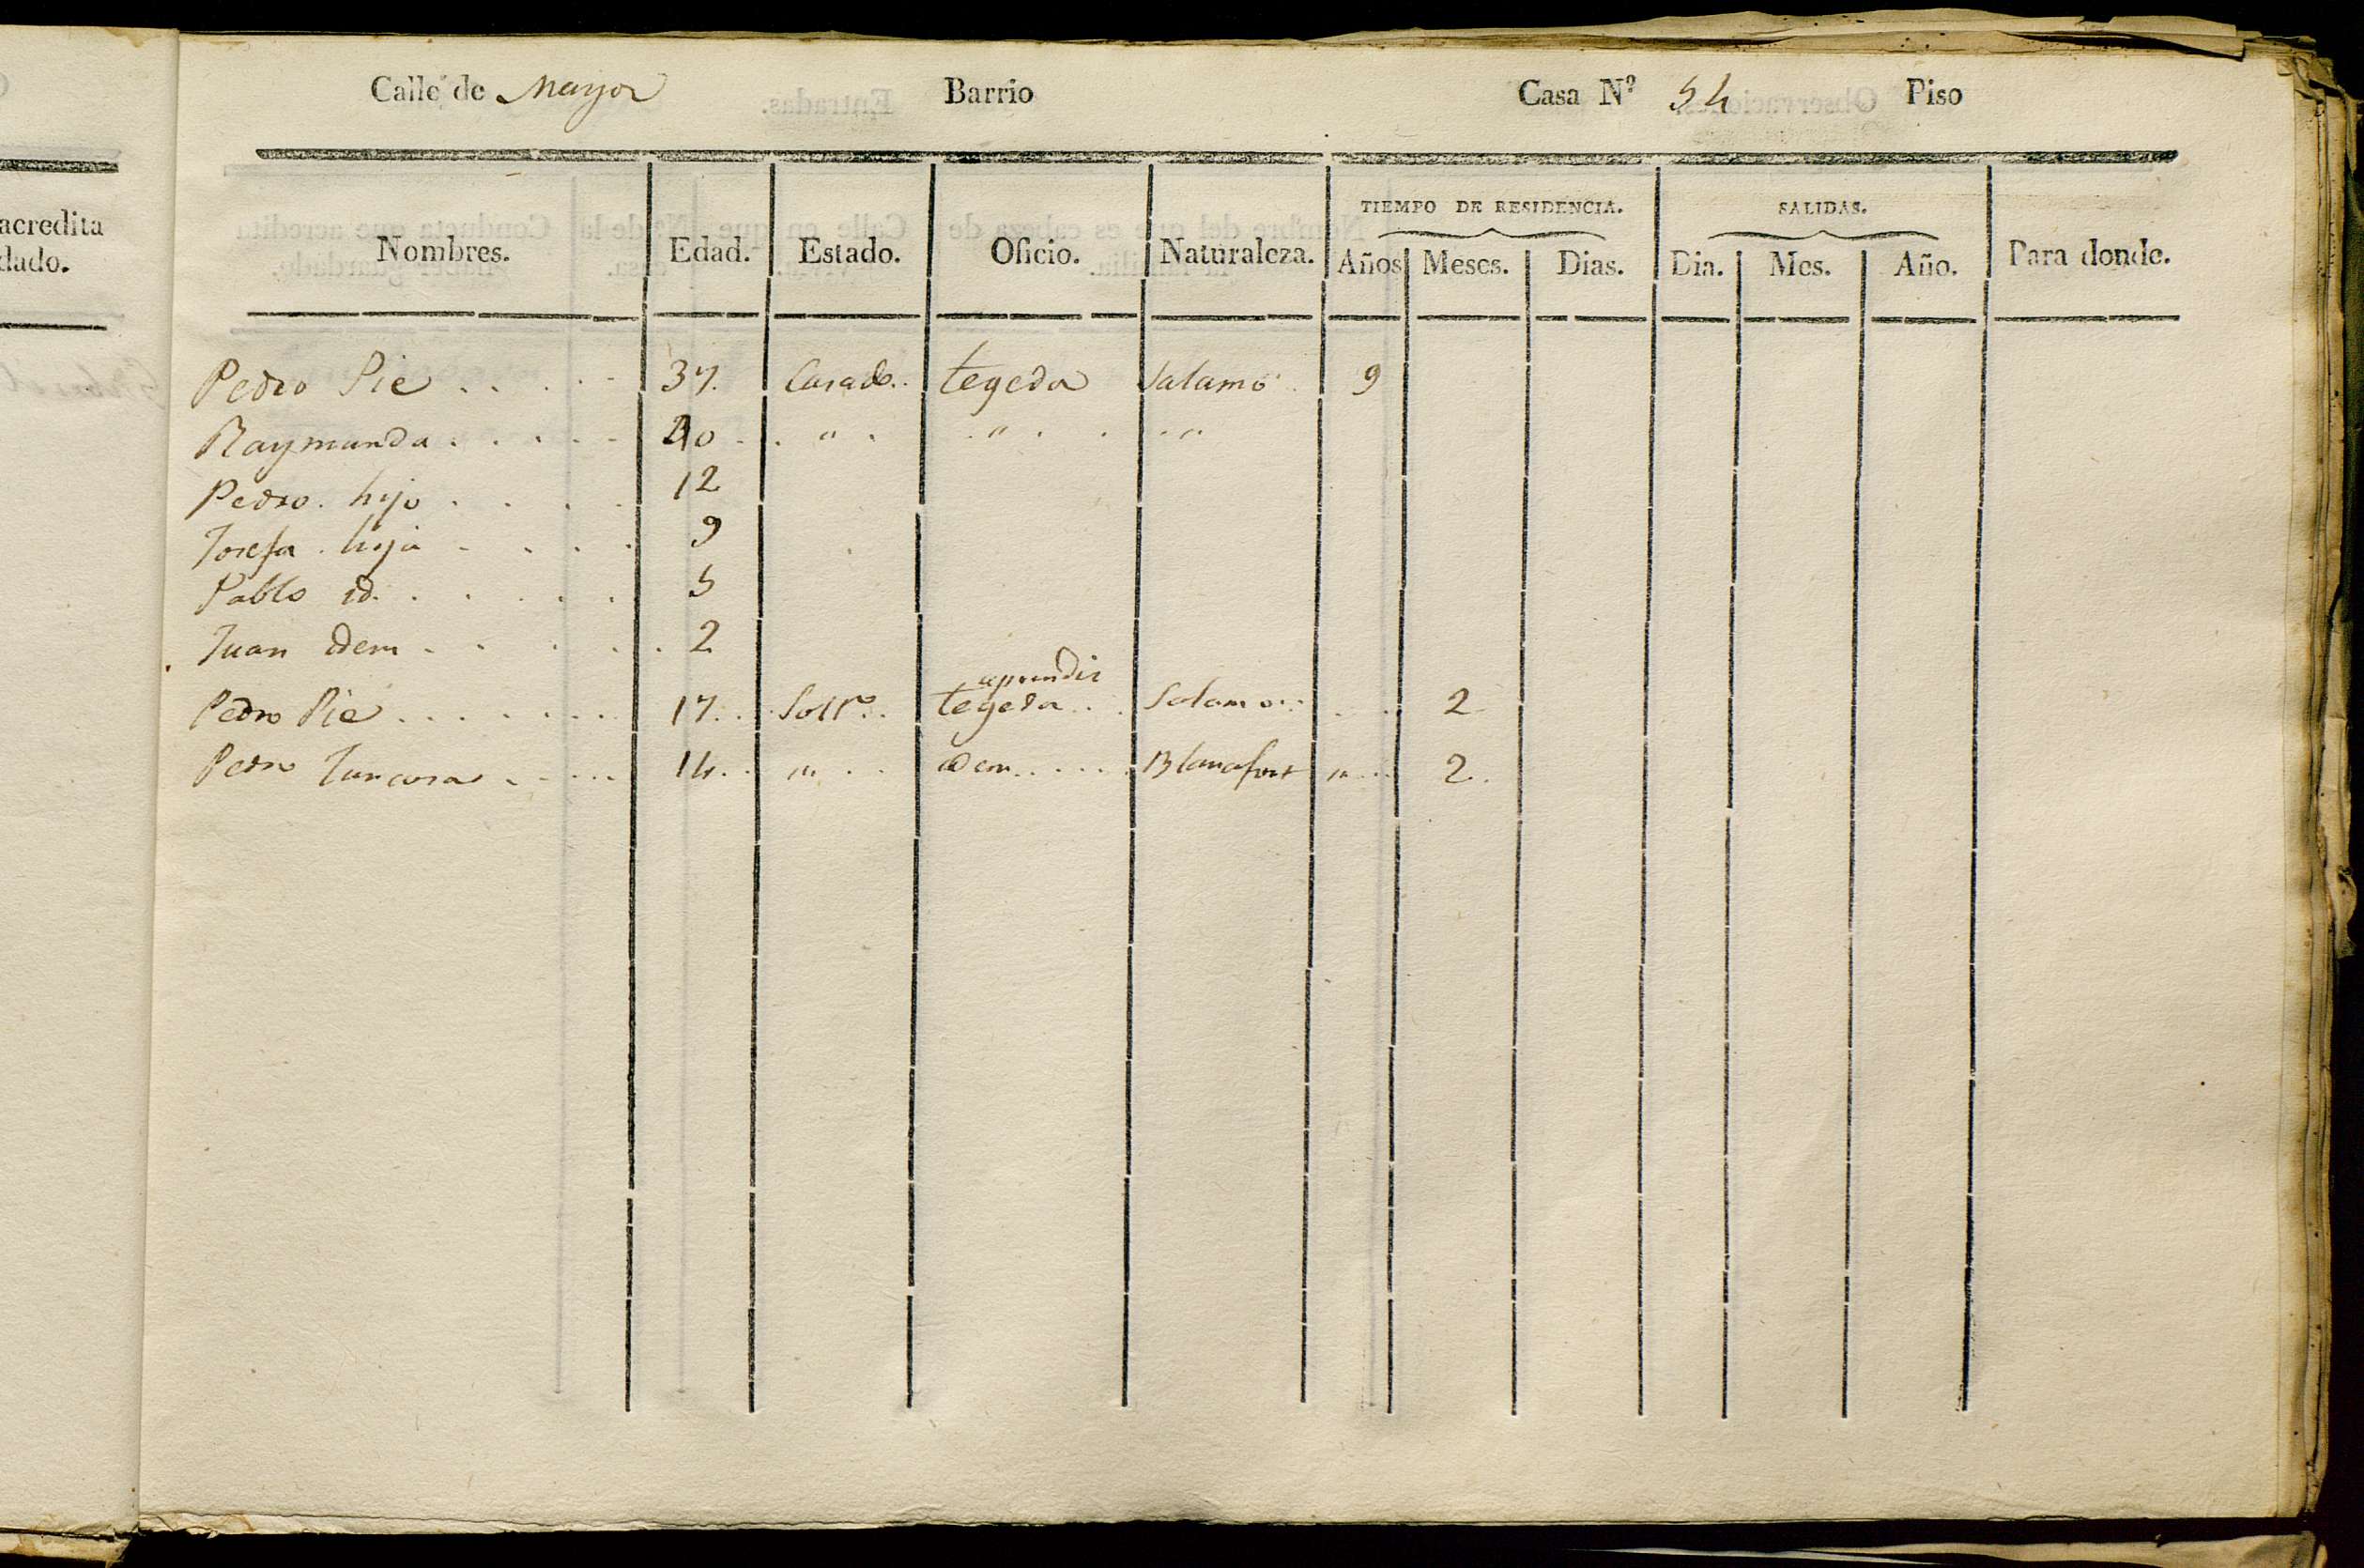 acredita
dado.
Calle de Mayor Barrio Casa Nº 54 Piso
TIEMPO DE RESIDENCIA. SALIDAS.
Nombres. Edad. Estado. Oficio. Naturaleza. Años Meses. Dias. Dia. Mes. Año. Para donde.
Pedro Pie . . . . . 37. Casado.. tegedor Salamó . 9
Raymunda . . . . . 40 . . " . . " . . . . "
Pedro. hijo . . . . 12
Josefa . hija . . . . 9
Pablo id. . . . . . 5
Juan idem . . . . . . 2
aprendis
Pedro Pie . . . . . . . 17. . . Solto. . tegedor . . . Salamo . . . . 2
Pedro . . . . . 14. . " . . idem . . . . . Blancafort " . . . 2.